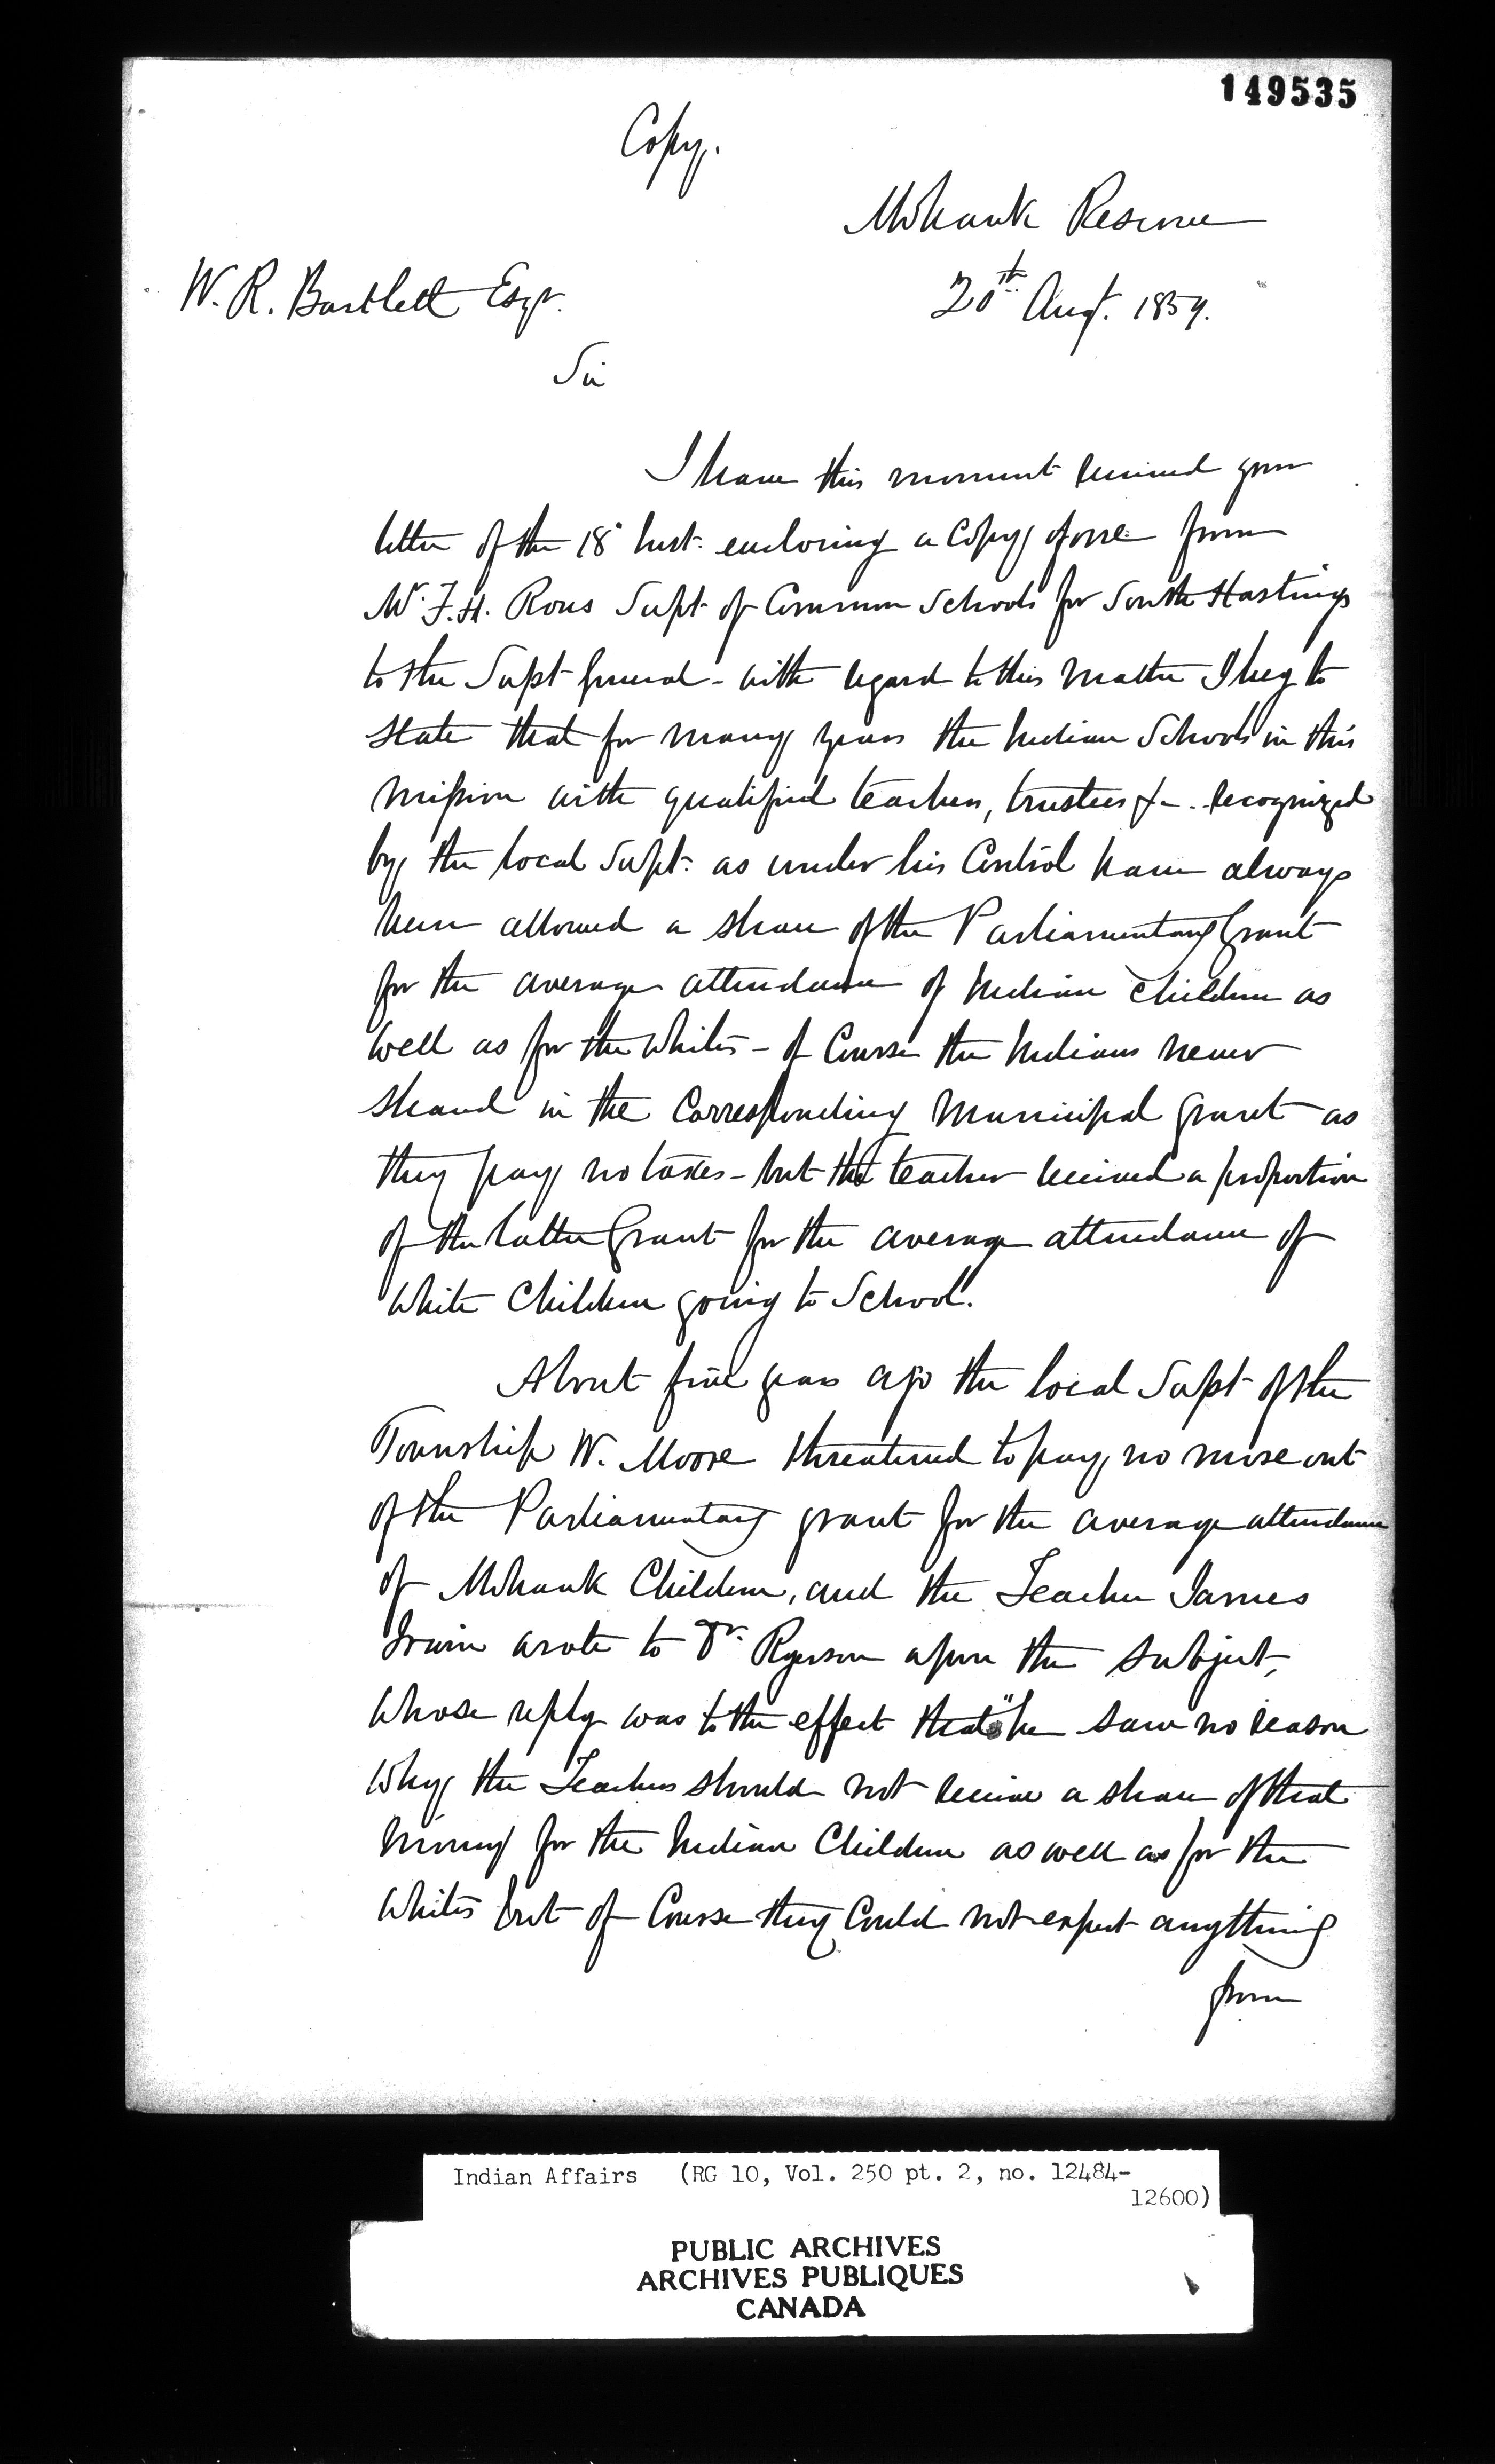 149535
Copy.
Mohawk Reserve
W. R. Bartlett Esqr.
20th Augt. 1859.
Sir
I have this moment received your
letter of the 18th Inst. enclosing a Copy of one from
Mr. F. H. Rous Supt of Common Schools for South Hastings
to the Supt General - with regard to this matter I beg to
state that for many years the Indian Schools in this
Mission with qualified teachers, trustees &c. recognized
by the local Supt. as under his Control have always
been allowed a share of the Parliamentary Grant
for the average attendance of Indian Children as
well as for the Whites - of Course the Indians never
shared in the Corresponding Municipal grant as
they pay no taxes - but the teacher received a proportion
of the latter Grant for the average attendance of
White Children going to School.
About five years ago the local Supt of the
Township W. Moore threatened to pay no more out
of the Parliamentary grant for the average attendance
of Mohawk Children, and the Teacher James
wrote to Dr. Ryerson upon the subject,
whose reply was to the effect that "he saw no reason
why the Teachers should not receive a share of that
money for the Indian Children as well as for the
Whites but of Course they Could not expect anything
from
Indian Affairs (RG 10, Vol. 250 pt. 2, no. 12484-
12600)
PUBLIC ARCHIVES
ARCHIVES PUBLIQUES
CANADA